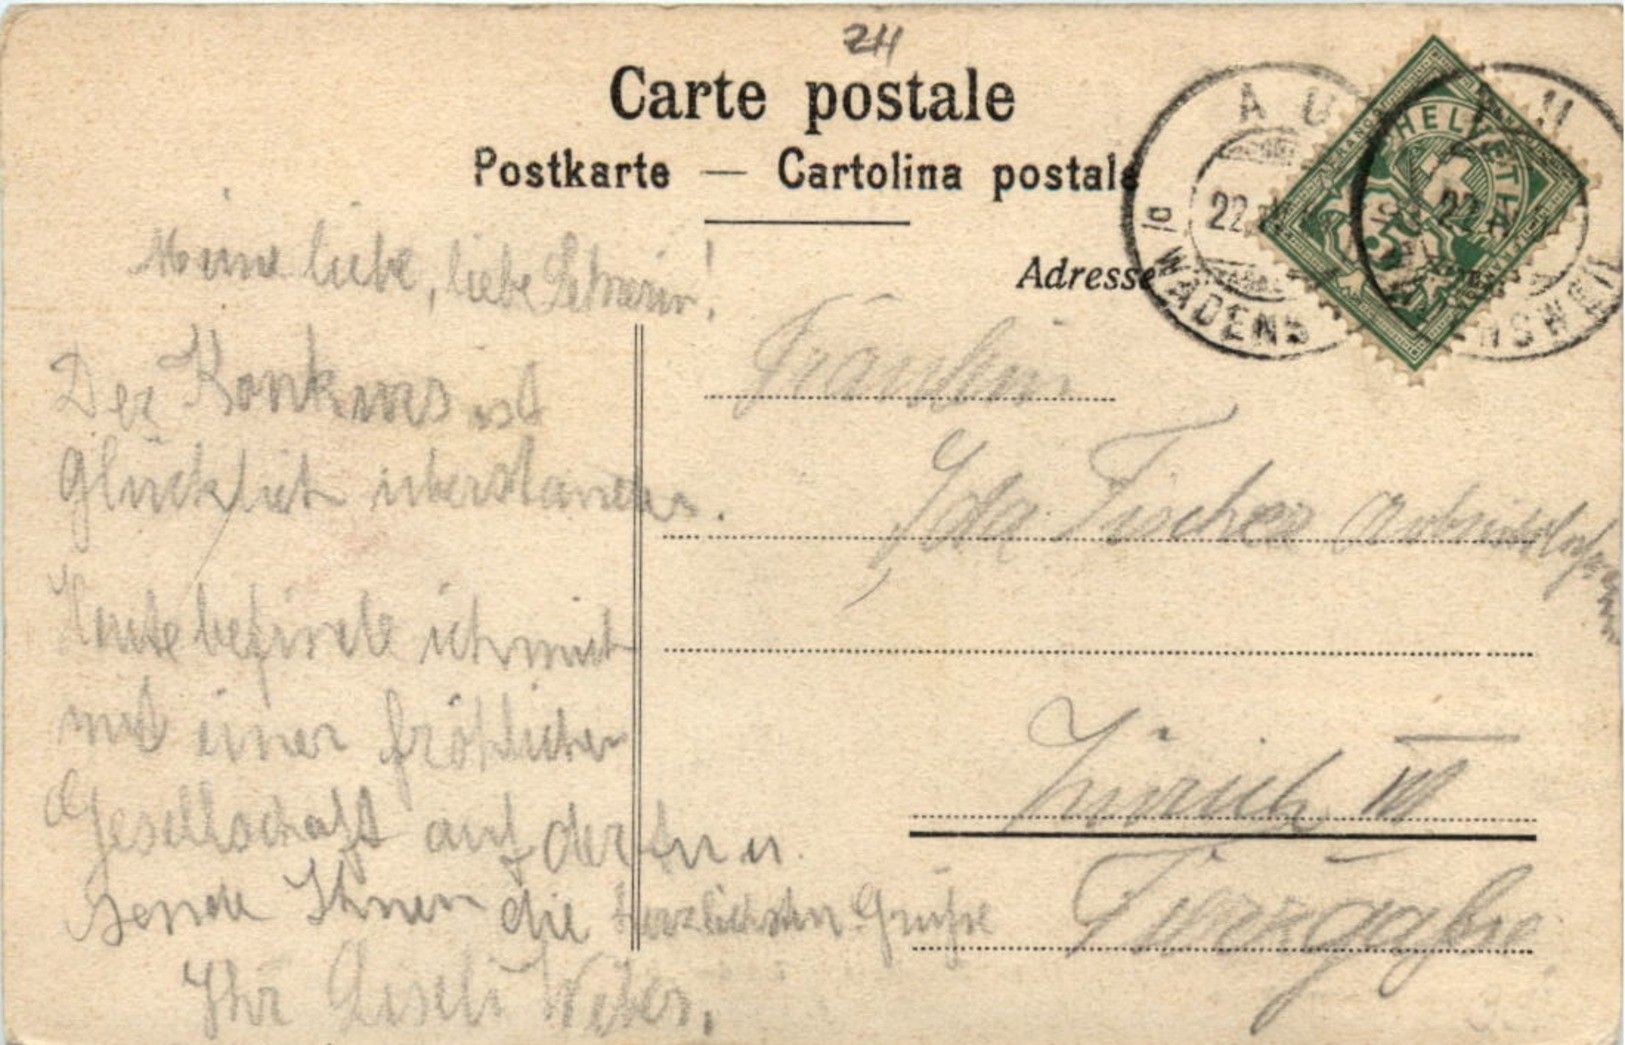 ZH
Carte postale
Postkarte — Cartolina postale
Adresse
AU
WÄDENS
22
HELVETIA
5
AU
22
NSWEIL
Meine liebe, liebe Lehrerin!
Der Konkurs ist
Glücklich überstanden.
Heute befinde ich mich
mit einer fröhlichen
Gesellschaft auf der Au u.
sende Ihnen die herzlichsten Grüße
Ihr Weber.
Fräulein
Ida Fischer
Zürich III